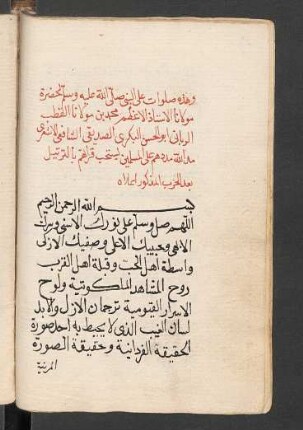 وهذه صلوات على النبي صلى الله عليه وسلم لحضرة
مولانا الاستاذ الاعظم محمد بن مولانا القطب
الرباني ابو الحسن البكري الصديقي الشافعي الاشعري
مد الله مددهم على المسلمين يستحب قراتهم بالترتيل
بعد الحزب المذكور اعلاه
بسم الله الرحمن الرحيم
اللهم صل وسلم على نورك الاسنى وسرك
الابهى وحبيبك الاعلى وصفيك الازكى
واسطة اهل الحب وقبلة اهل القرب
روح المشاهد الملكوتية ولوح
الاسرار القيومية ترجمان الازل والابد
لسان الغيب الذي لا يحيط به احد صورة
الحقيقة الفردانية وحقيقة الصورة
المزينة